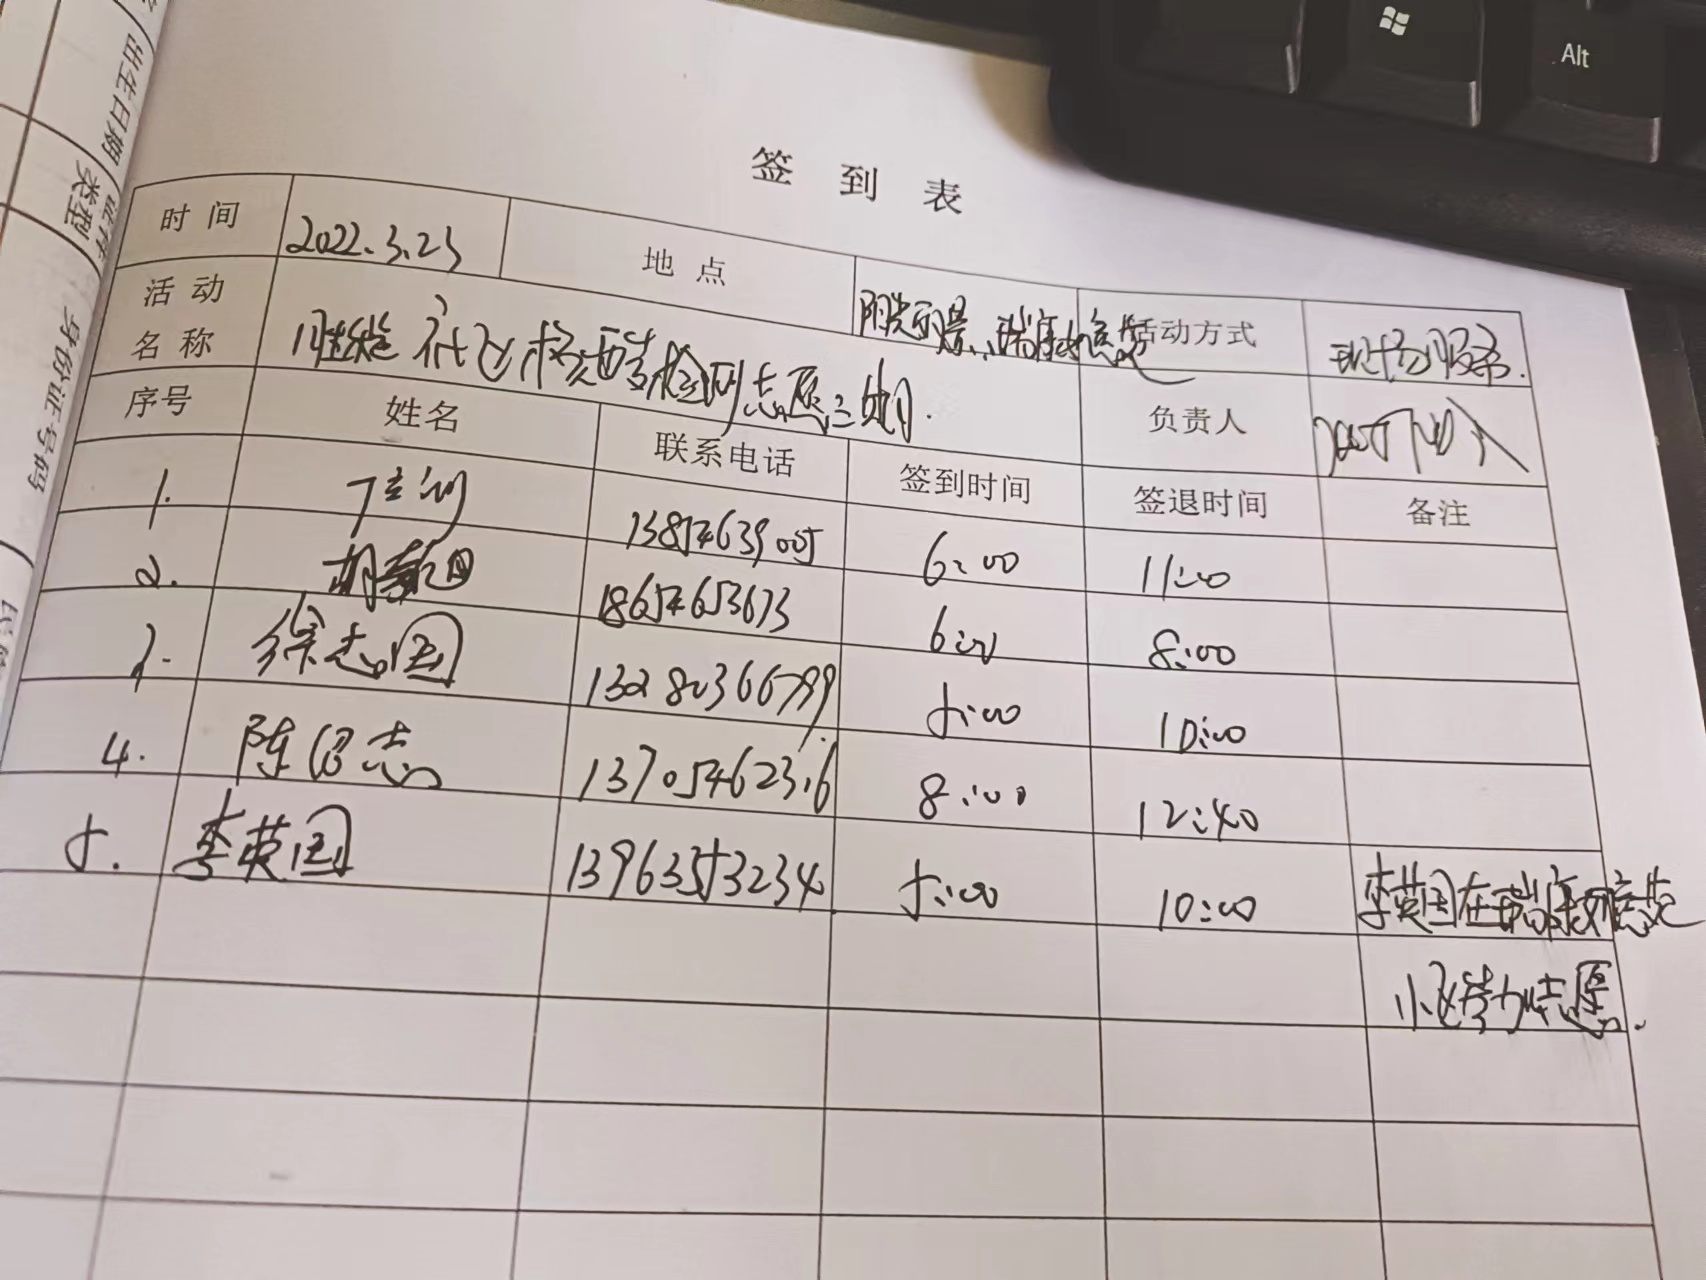 Alt
出生日期
证件类型
身份证号码
签到表
时间 2022.3.23 地点 活动方式 现场服务.
活动名称 胜继社区核酸检测志愿三期. 负责人
序号 姓名 联系电话 签到时间 签退时间 备注
1. 13854639005 6:00 11:00
2. 18654653673 6:00 8:00
3. 徐志国 13280366799 5:00 10:00
4. 陈绍志 13705462316 8:00 12:40
5. 李英国 13963553234 5:00 10:00 李英国在瑞康如意苑
小区参加志愿.